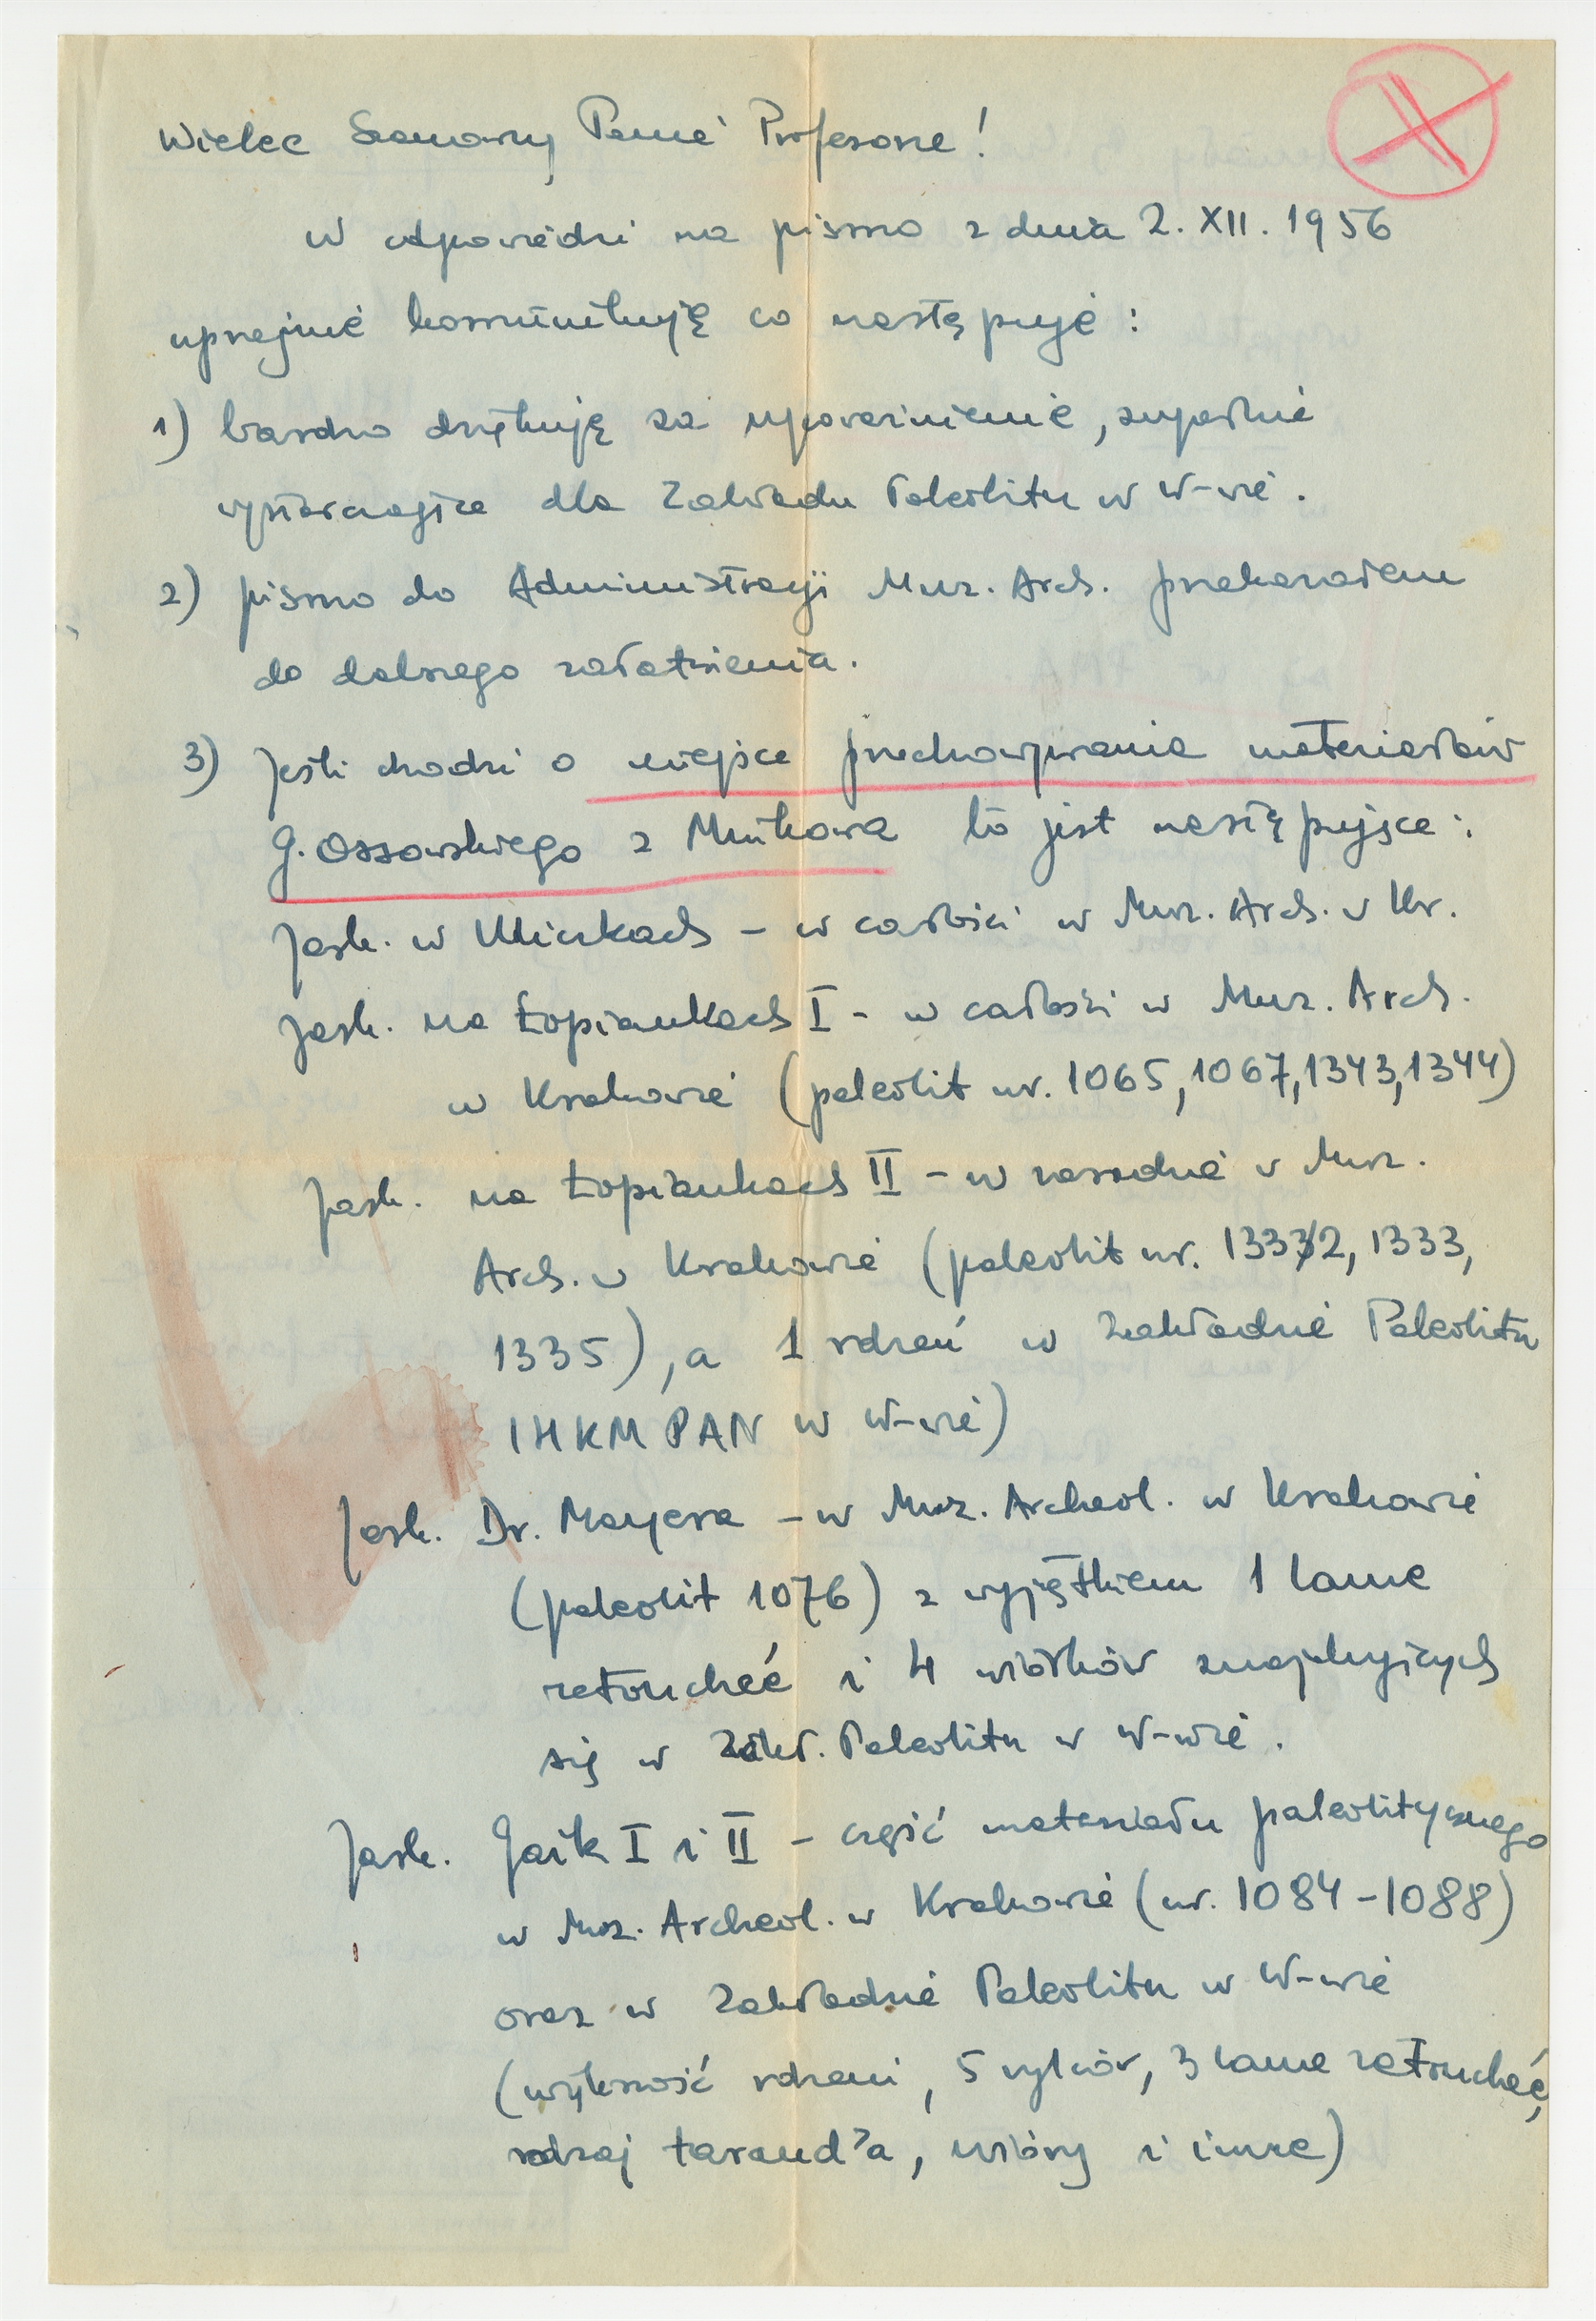 Wielce Szanowny Panie Profesorze!
w odpowiedzi na pismo z dnia 2. XII. 1956
uprzejmie komunikuję co następuje:
1) bardzo dziękuję za upoważnienie, zupełnie
wystarczające dla Zakładu Paleolitu w W-wie.
2) pismo do Administracji Muz. Arch. przekazałem
do dalszego załatwienia.
3) Jeśli chodzi o miejsce przechowywania materiałów
G. Ossowskiego z Mnikowa to jest następujące:
Jask. w Ulicz kach - w całości w Muz. Arch. w Kr.
Jask. na Łopiankach I - w całości w Muz. Arch.
w Krakowie (paleolit nr. 1065, 1067, 1343, 1344)
Jask. na Łopiankach II - w zasadzie w Muz.
Arch. w Krakowie (paleolit nr. 1332, 1333,
1335), a 1 rdzeń w Zakładzie Paleolitu
IHKM PAN w W-wie)
Jask. Dr. Mayera - w Muz. Archeol. w Krakowie
(paleolit 1076) z wyjątkiem 1 lame
retouchée i 4 wiórków znajdujących
się w Zakł. Paleolitu w W-wie.
Jask. Gaik I i II - część materiału paleolitycznego
w Muz. Archeol. w Krakowie (nr. 1084-1088)
oraz w Zakładzie Paleolitu w W-wie
(większość rdzeni, 5 rylców, 3 lame retouchée,
rodzaj taraud'a, wióry i inne)